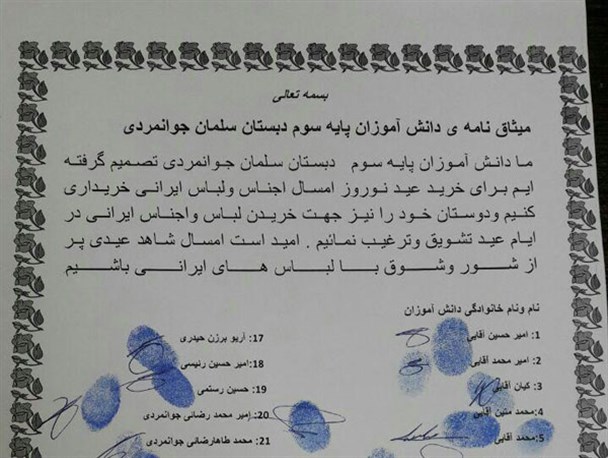 بسمه تعالی
میثاق نامه ی دانش آموزان پایه سوم دبستان سلمان جوانمردی
ما دانش آموزان پایه سوم دبستان سلمان جوانمردی تصمیم گرفته
ایم برای خرید عید نوروز امسال اجناس ولباس ایرانی خریداری
کنیم ودوستان خود را نیز جهت خریدن لباس واجناس ایرانی در
ایام عید تشویق وترغیب نمائیم . امید است امسال شاهد عیدی پر
از شور وشوق با لباس های ایرانی باشیم
نام ونام خانوادگی دانش آموزان
1: امیر حسین آقایی
2: امیر محمد آقایی
3: کیان آقایی
4: محمد متین آقایی
5: محمد آقایی
17: آریو برزن حیدری
18: امیر حسین رئیسی
19: حسین رستمی
20: امیر محمد رضائی جوانمردی
21: محمد طاهارضائی جوانمردی